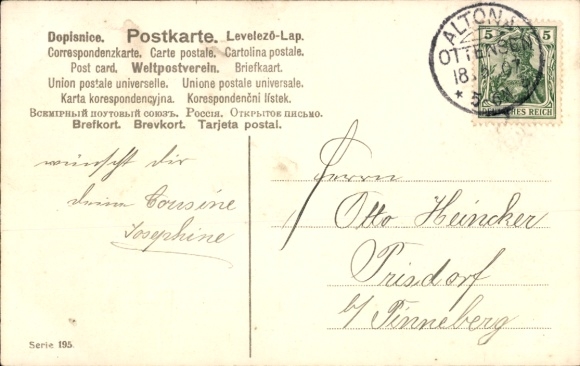 Dopisnice. Postkarte. Levelező-Lap.
Correspondenzkarte. Carte postale. Cartolina postale.
Post card. Weltpostverein. Briefkaart.
Union postale universelle. Unione postale universale.
Karta korespondencyjna. Korespondenční lístek.
Всемірный почтовый союзъ. Россія. Открытое письмо.
Brefkort. Brevkort. Tarjeta postal.
wünscht dir
deine Cousine
Josephine
Serie 195.
ALTONA
OTTENSEN
18.
07
* 5
5 5
DEUTSCHES REICH
Herrn
Otto Heincker
Prisdorf
b/ Pinneberg